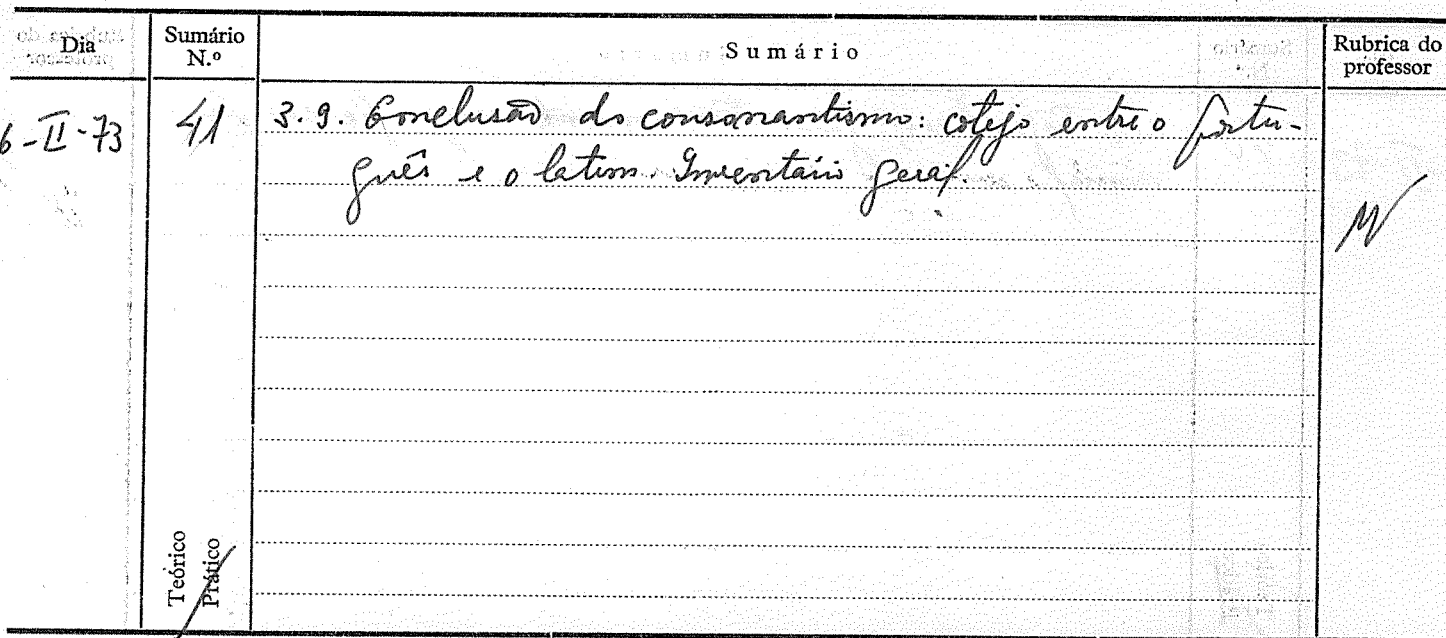 Dia
Sumário N.º
Sumário
Rubrica do professor
6-II-73
41
3.9. Conclusão do consonantismo: cotejo entre o portu-
guês e o latim. Inventário geral.
Teórico
Prático